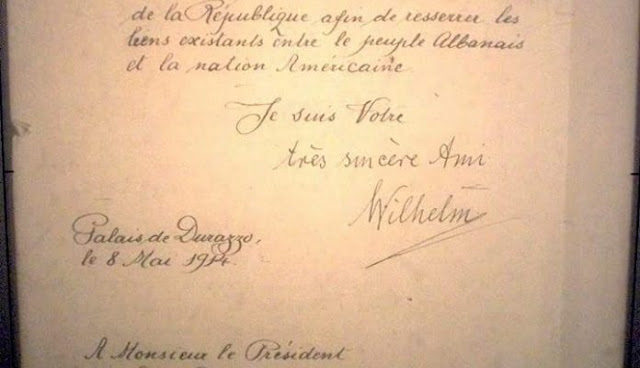 de la République afin de resserrer les
liens existants entre le peuple Albanais
et la nation Américaine.
Je suis Votre
très sincère Ami
Wilhelm
Palais de Durazzo,
le 8 Mai 1914.
A Monsieur le Président